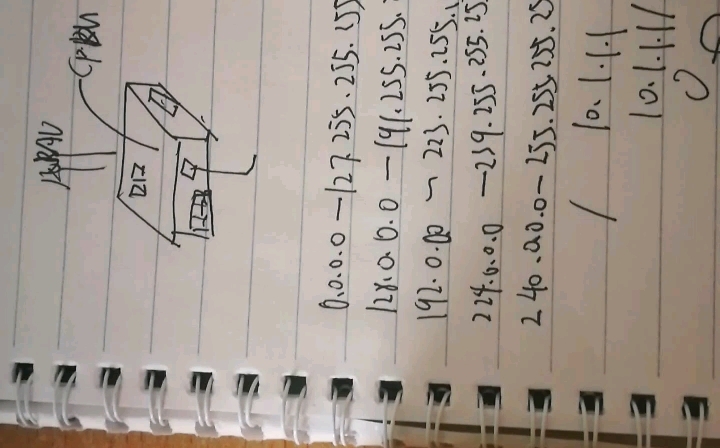 0.0.0.0 — 127.255.255.255
128.0.0.0 — 191.255.255.
192.0.00 ~ 223.255.255.
224.0.0.0 — 239.255.255.25
240.00.0.0 — 255.255.255.25
/ 10.1.1.1
10.1.1.1/